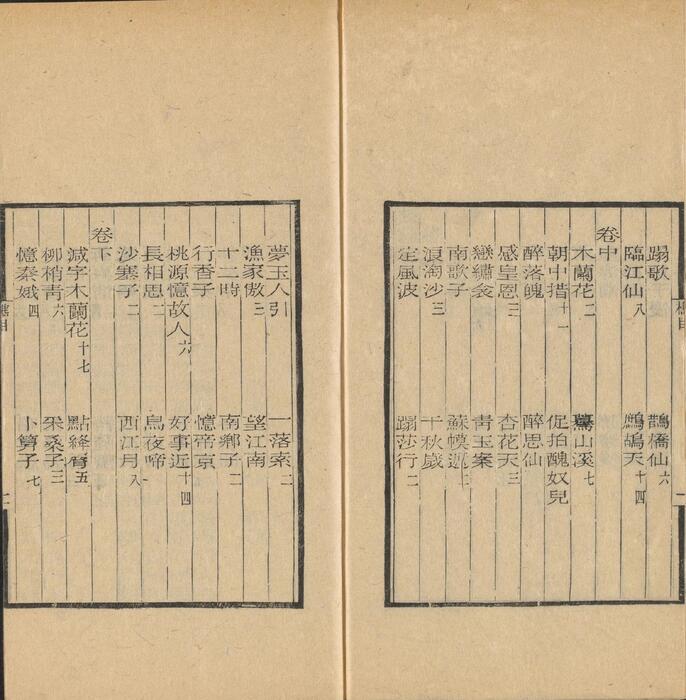 蹋歌 鵲橋仙六
臨江仙八 鷓鴣天十四
卷中
木蘭花二 驀山溪七
朝中措十一 促拍醜奴兒
醉落魄 醉思仙
感皇恩三 杏花天三
戀繡衾 青玉案
南歌子 蘇幕遮二
浪淘沙三 千秋歲
定風波 蹋莎行二
夢玉人引 一落索二
漁家傲三 望江南
十二時 南鄉子二
行香子 憶帝京
桃源憶故人六 好事近十四
長相思二 烏夜啼一
沙塞子二 西江月八
卷下
減字木蘭花十七 點絳脣五
柳梢青六 采桑子三
憶秦娥四 卜算子七